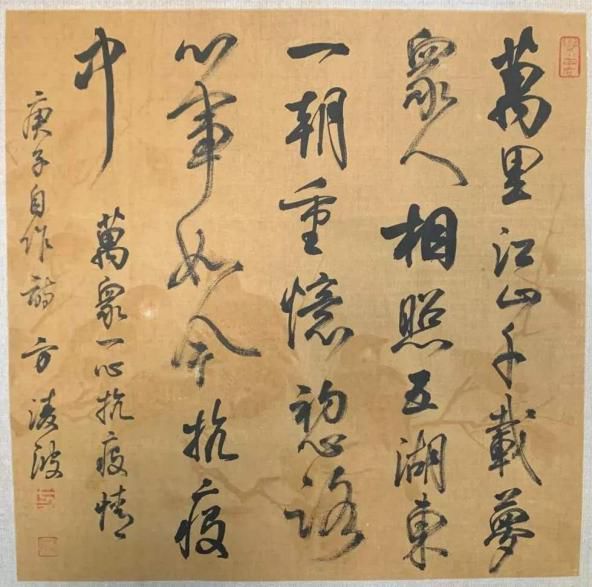 萬里江山千載夢
衆人相照五湖東
一朝重憶初心路
心事如今抗疫
中
萬衆一心抗疫情
庚子自作詩 方凌波